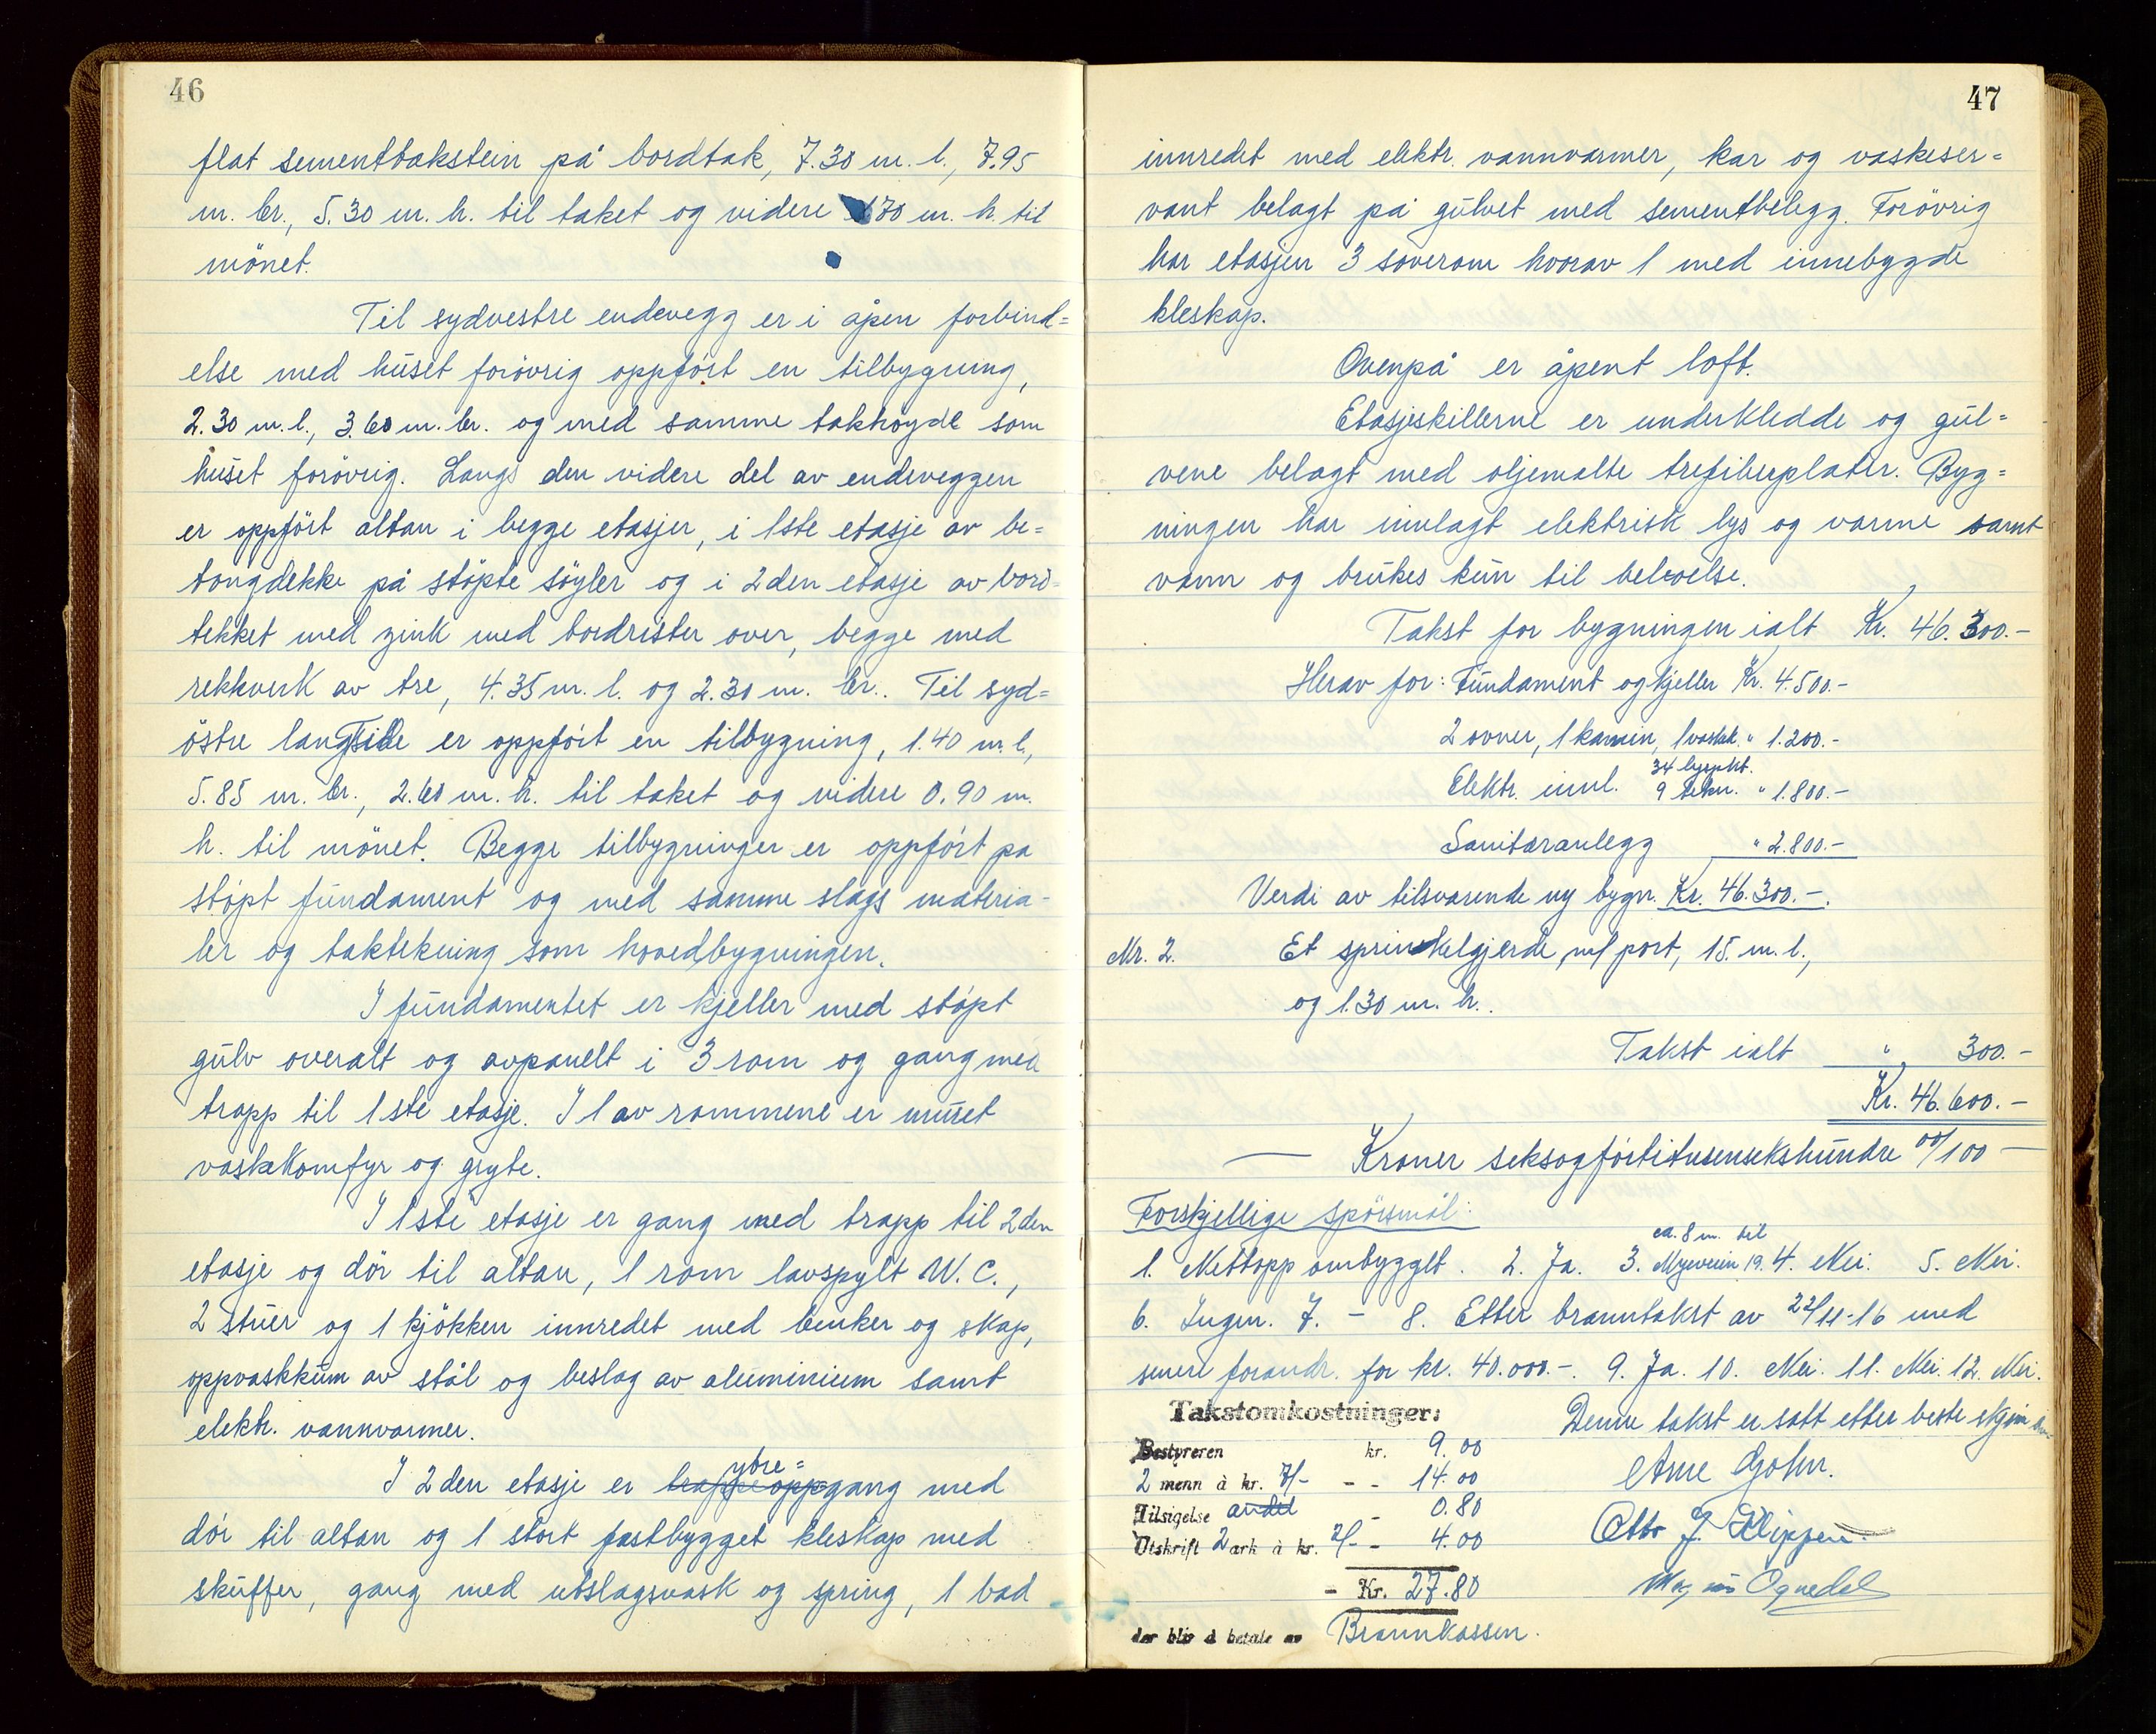 46
flat sementtakstein på bordtak, 7.30 m. l., 7.95
m. br., 5.30 m. h. til taket og videre 1.70 m. h. til
mönet.
Til sydvestre endevegg er i åpen forbind=
else med huset forövrig oppfört en tilbygning,
2.30 m. l., 3.60 m. br. og med samme takhoyde som
huset forövrig. Langs den videre del av endeveggen
er oppfört altan i begge etasjer, i 1ste etasje av be=
tongdekke på stöpte söyler og i 2den etasje av bord
tekket med zink med bordrister over, begge med
rekkverk av tre, 4.35 m. l. og 2.30 m. br.. Til syd=
östre langside er oppfört en tilbygning, 1.40 m. l.,
5.85 m. br., 2.60 m. h. til taket og videre 0.90 m.
h. til mönet. Begge tilbygninger er oppfört pa
stöpt fundament og med samme slags materia-
ler og taktekning som hovedbygningen.
I fundamentet er kjeller med stöpt
gulv overalt og avpanelt i 3 rom og gang med
trapp til 1ste etasje. I 1 av rommene er muret
vaskekomfyr og gryte.
I 1ste etasje er gang med trapp til 2den
etasje og dör til altan, 1 rom lavspylt W. C.,
2 stuer og 1 kjökken innredet med benker og skap,
oppvaskkum av stål og beslag av aluminium samt
elektr. vannvarmer.
I 2den etasje er trappeoppgang med
ytre=
dör til altan og 1 stort fastbygget kleskap med
skuffer, gang med utslagsvask og spring, 1 bad
47
innredet med elektr. vannvarmer, kar og vaskeser=
vant belagt på gulvet med sementbelegg. Forövrig
har etasjen 3 soverom hvorav 1 med innebygde
kleskap.
Ovenpå er åpent loft.
Etasjeskillerne er underkledde og gul=
vene belagt med oljemalte trefiberplater. Byg=
ningen har innlagt elektrisk lys og varme samt
vann og brukes kun til beboelse.
Takst for bygningen ialt Kr. 46.300.-
Herav for: Fundament og kjeller Kr. 4.500.-
2 ovner, 1 kamin, 1 vaskek. " 1.200.-
34 lyspkt.
Elektr. innl. 9 tekn. " 1.800.-
Sanitæranlegg " 2.800.-
Verdi av tilsvarende ny bygn. Kr. 46.300.-.
Nr. 2. Et sprinkelgjerde m/ port, 15. m. l.,
og 1.30 m. h..
Takst ialt " 300.-
Kr. 46.600.-
— Kroner seksogförtitusensekshundre 00/100 —
Forskjellige spörsmål:
ca. 8 m. til
1. Nettopp ombygget. 2. Ja. 3. Myrveien 19. 4. Nei. 5. Nei.
6. Ingen. 7. - 8. Etter branntakst av 22/11-16 med
senere forandr. for kr. 40.000.-. 9. Ja. 10. Nei. 11. Nei. 12. Nei.
Takstomkostninger:
Bestyreren kr. 9.00
2 menn à kr. 7/- - - 14.00
Tilsigelse andel - 0.80
Utskrift 2 ark à kr. 2/- - 4.00
- Kr. 27.80
der blir å betale av Brannkassen.
Denne takst er satt etter beste skjön
Arne Gjohn.
Otto J. Klippen.
Magnus Ognedal